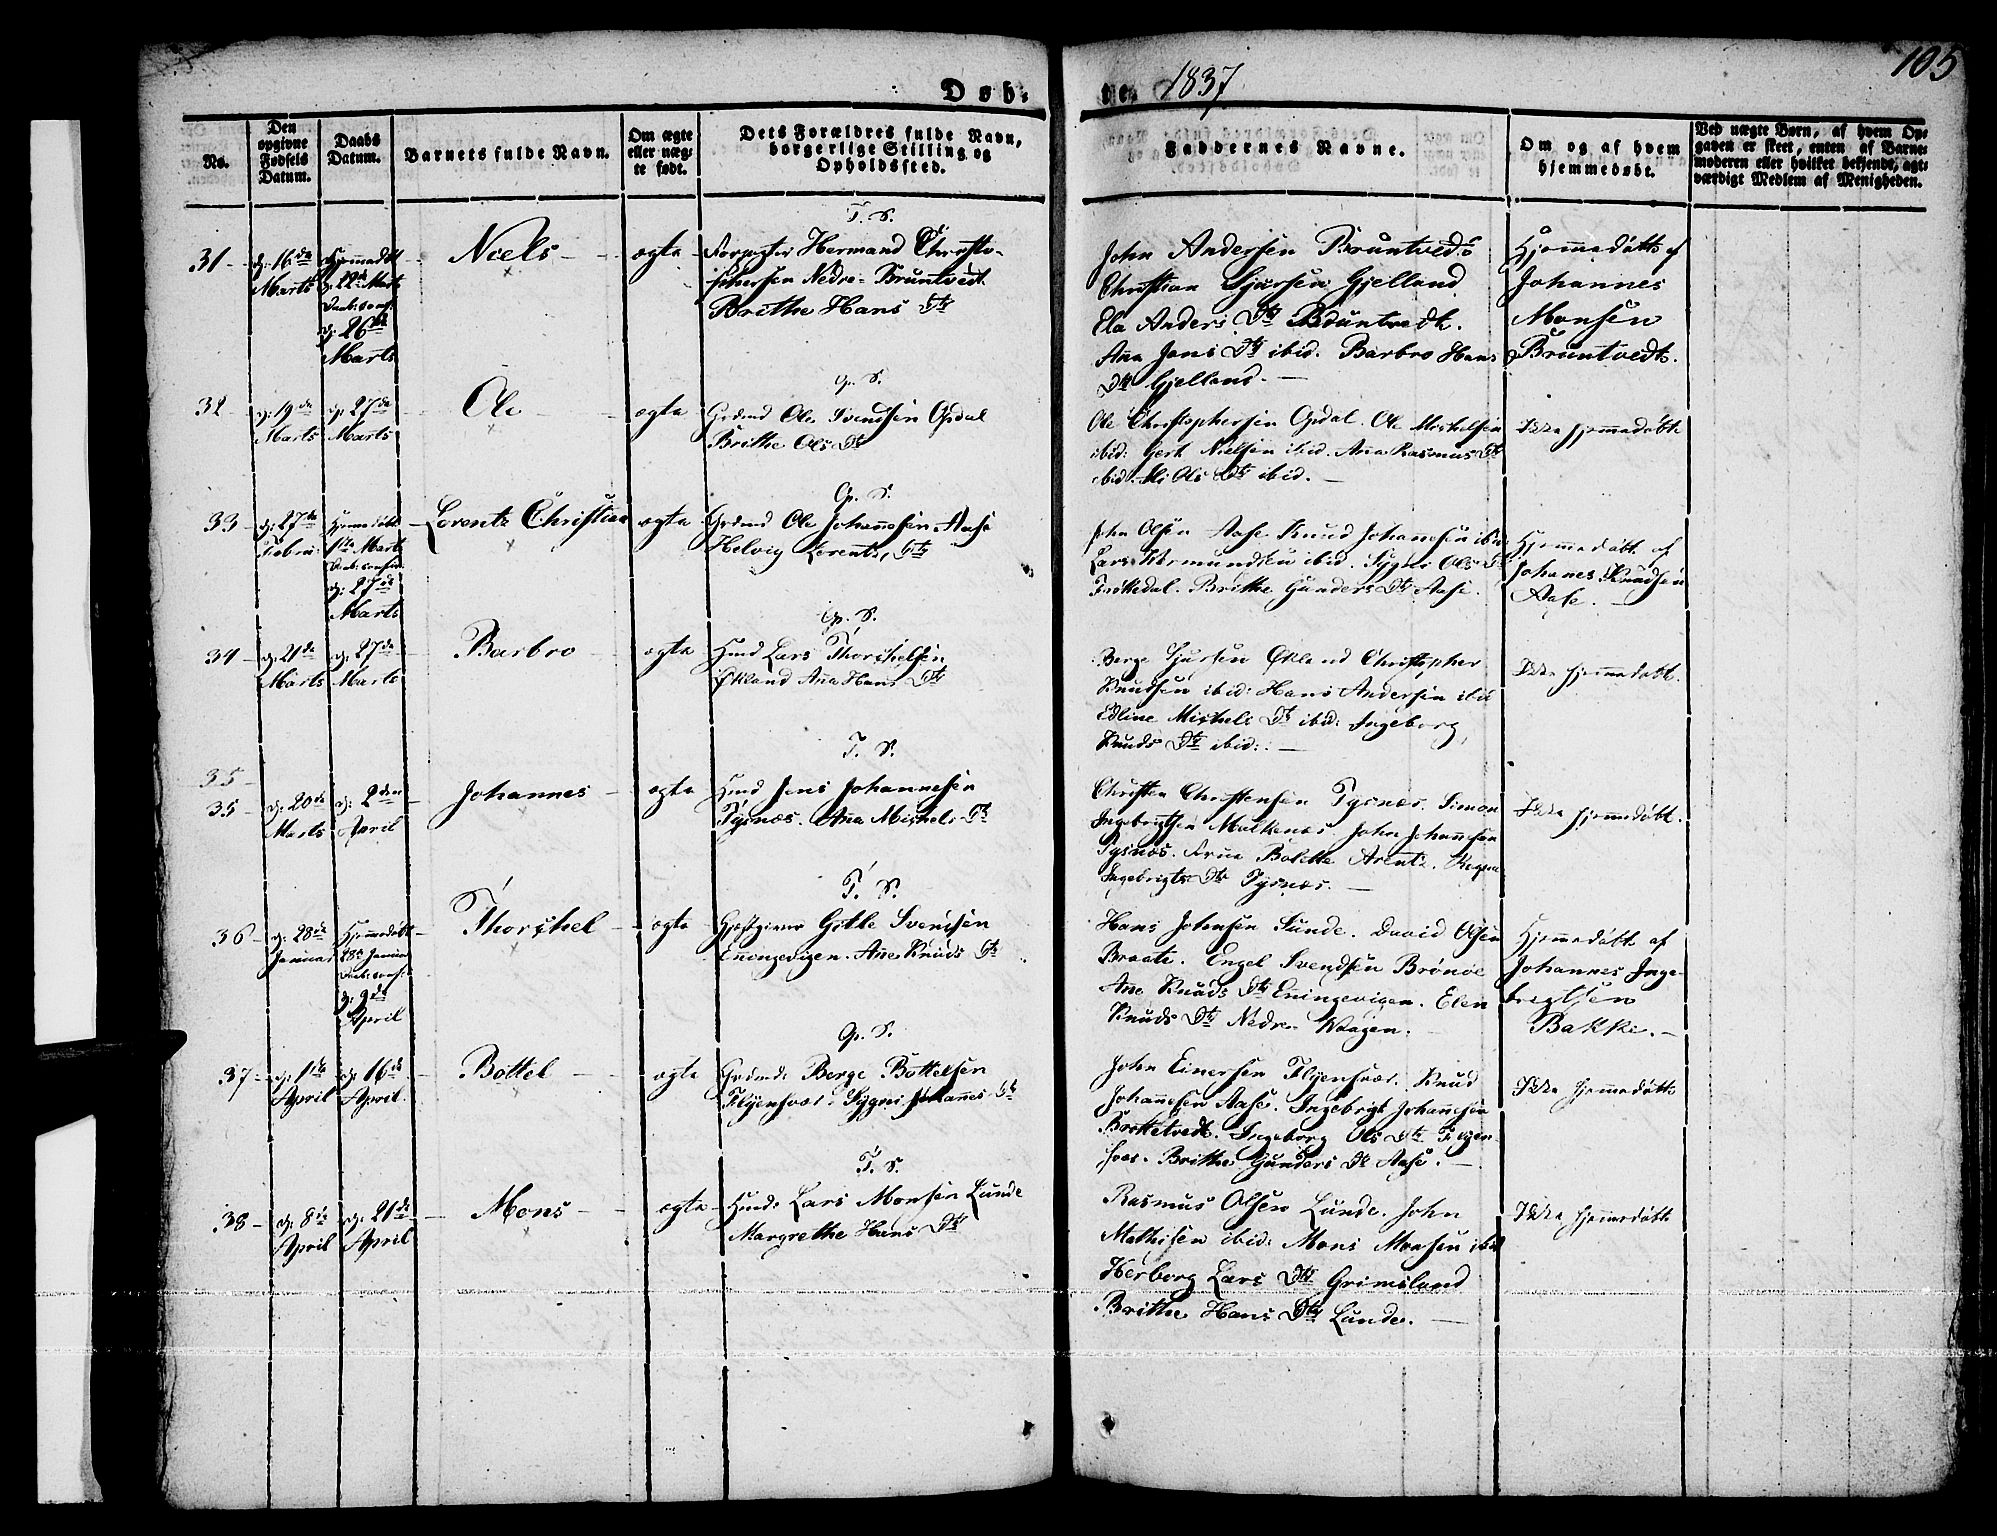 105
Døb-
te 1837
No.
Den
opgivne
Fødsels
Datum.
Daabs
Datum.
Barnets fulde Navn.
Om ægte
eller uæg-
te født.
Dets Forældres fulde Navn,
borgerlige Stilling og
Opholdssted.
Faddernes Navne.
Om og af hvem
hjemmedøbt.
Ved uægte Børn, af hvem Op-
gaven er skeet, enten af Barne-
moderen eller hvilket bekjendt, agt-
værdigt Medlem af Menigheden.
31
d: 16de
Marts
Hjemmedøbt
d: 22de Marts
Daab: conf:
d: 26de
Marts
Niels
ægte
T. S.
Forpagter Hermand Christo-
phersen Nedre-Bruntvedt
Brithe Hans Dtr
John Andersen Bruntvedt
Christian Sjursen Gjelland
Ela Anders Dtr Bruntvedt.
Ana Jens Dtr ibid. Barbro Hans
Dtr Gjelland.
Hjemmedøbt af
Johannes
Monsen
Bruntvedt.
32
d: 19de
Marts
d: 27de
Marts
Ole
ægte
Op. S.
Grdmd Ole Svendsen Opdal
Brithe Ols Dtr
Ole Christophersen Opdal. Ole Michelsen
ibid: Gert Nielsen ibid. Ana Rasmus Dtr
ibid. Ols Dtr ibid.
Ikke hjemmedøbt
33
d: 27de
Febru:
Hjemmedøbt
1ste Marts
Daab: conf:
d: 27de
Marts
Lorentz Christian
ægte
Op. S.
Grdmd Ole Johannesen Aase
Helvig Lorents Dtr
John Olsen Aase Knud Johanesen ibid:
Lars Aamundsen ibid. Sygni Ols Dtr
Frøkedal. Brithe Gunders Dtr Aase.
Hjemmedøbt af
Johanes Knudsen
Aase.
34
d: 21de
Marts
d: 27de
Marts
Barbro
ægte
Op. S.
Hmd Lars Thorchelsen
Økland Ana Hans Dtr
Berge Sjursen Økland Christopher
Knudsen ibid: Hans Andersen ibid
Edline Michels Dtr ibid: Ingeborg
Knuds Dtr ibid:
Ikke hjemmedøbt.
35
35
d: 20de
Marts
d: 2den
April
Johannes
ægte
T. S.
Hmd Jens Johannesen
Tysnæs. Ana Michels Dtr
Christen Christensen Tysnæs. Simon
Ingebrigtsen Malkenæs John Johannesen
Tysnæs. Frue Bolette Arentz.
Ingebrigts Dtr Tysnæs.
Ikke hjemmedøbt.
36
d: 28de
Januar
Hjemmedøbt
28de Januar
Daab: conf:
d: 2de
April
Thorchel
ægte
T. S.
Gjestgiver Gitle Svendsen
Eningevigen. Ane Knuds Dtr
Hans Johnsen Sunde. David Olsen
Braate. Engel Svendsen Brønøe
Ane Knuds Dtr Eningevigen. Elen
Knuds Dtr Nedre Waagen.
Hjemmedøbt af
Johannes Inge-
brigtsen
Bakke.
37
d: 1ste
April
d: 16de
April
Bottel
ægte
Op. S.
Grdmd: Berge Bottelsen
Flyensvær. Sygni Johannes Dtr
John Einersen Flyensvær. Knud
Johannesen Aase. Ingebrigt Johannesen
Brotketvedt. Ingeborg Ols Dtr Flyen-
svær. Brithe Gunders Dtr Aase.
Ikke hjemmedøbt
38
d: 8de
April
d: 21de
April
Mons
ægte
T. S.
Hmd: Lars Monsen Lunde
Margrethe Hans Dtr
Rasmus Olsen Lunde. John
Mathisen ibid: Mons Monsen ibid
Herborg Lars Dtr Grimsland
Brithe Hans Dtr Lunde.
Ikke hjemmedøbt